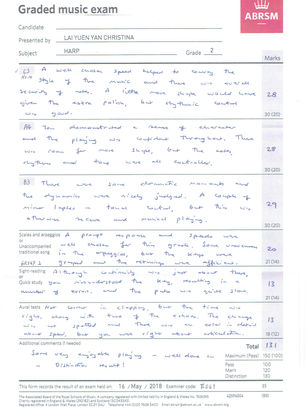 Graded music exam
ABRSM
Candidate
Presented by LAI YUEN YAN CHRISTINA
Subject HARP Grade 2
Marks
A well chosen speed helped to convey the
style of the music and there was overall
security of notes. A little more shape would have
given the extra polish, but rhythmic control
was good.
28
30 (20)
You demonstrated a sense of character
and the playing was confident throughout. There
was room for more shape, but the notes,
rhythm and tone were all controlled.
28
30 (20)
There were some dramatic moments and
the dynamics were nicely judged. A couple of
minor lapses in tonal control, but this was
otherwise secure and musical playing.
29
30 (20)
Scales and arpeggios
or
Unaccompanied
traditional song
A prompt response and speeds were
well chosen for this grade. Some unevenness
in the arpeggios, but the keys were
grasped and the naming was efficient.
20
21 (14)
Sight-reading
or
Quick study
Although continuity was just about there,
you misunderstood the key, resulting in a
number of errors. The pulse was quite slow.
13
21 (14)
Aural tests
Not correct in clapping, but the time was
right, along with two of the echoes. The change
was not spotted and there was no detail
about speed, but you were right about articulation.
13
18 (12)
Additional comments (if needed)
Some very enjoyable playing - well done on
a Distinction result!
Total 131
Maximum (Pass) 150 (100)
Pass 100
Merit 120
Distinction 130
This form records the result of an exam held on: 16 / May / 2018 Examiner code